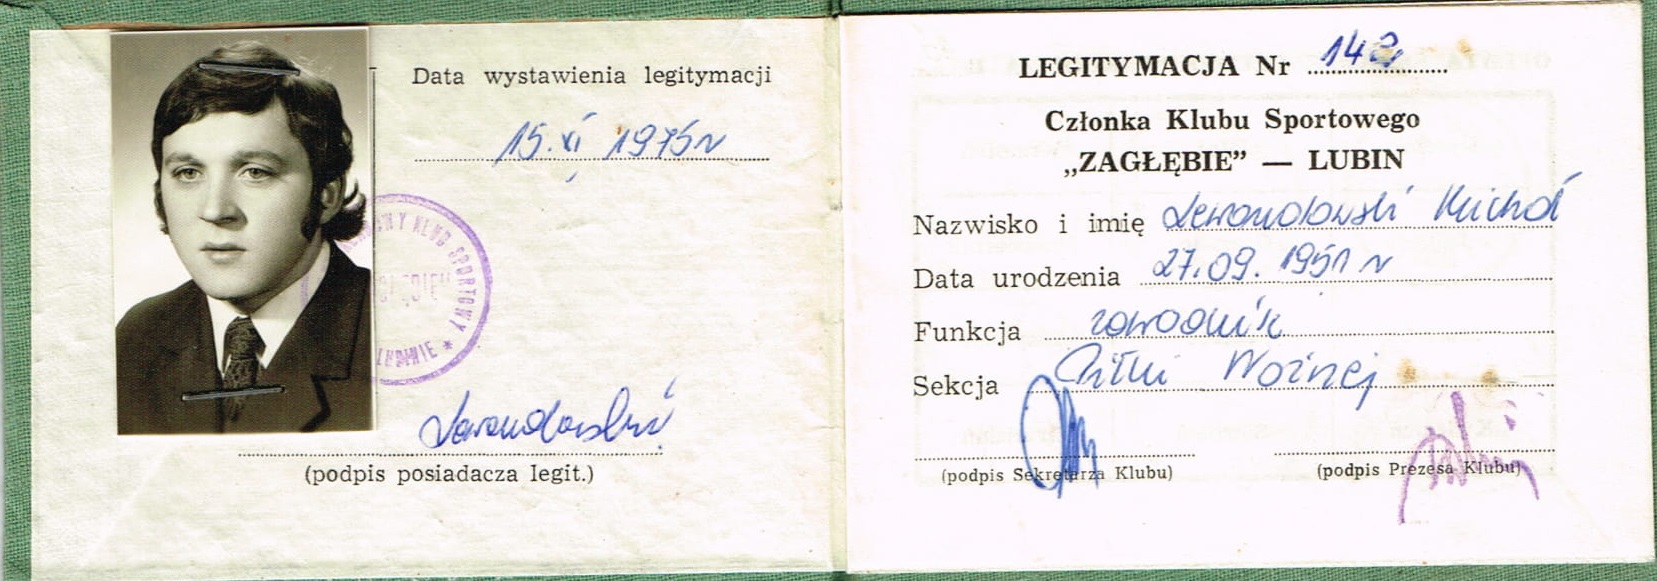 Data wystawienia legitymacji
15.XI 1975 r
KLUB SPORTOWY
LUBINIE *
Lewandowski
(podpis posiadacza legit.)
LEGITYMACJA Nr 142
Członka Klubu Sportowego
„ZAGŁĘBIE” — LUBIN
Nazwisko i imię Lewandowski Michał
Data urodzenia 27.09.1951 r
Funkcja zawodnik
Sekcja Piłki Nożnej
(podpis Sekretarza Klubu)
(podpis Prezesa Klubu)